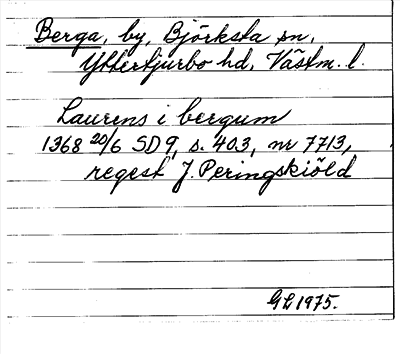 Berga, by, Björksta sn,
Yttertjurbo hd, Västm. l.
Laurens i bergum
1368 20/6 SD 9, s. 403, nr 7713,
regest J. Peringskiöld
GL 1975.